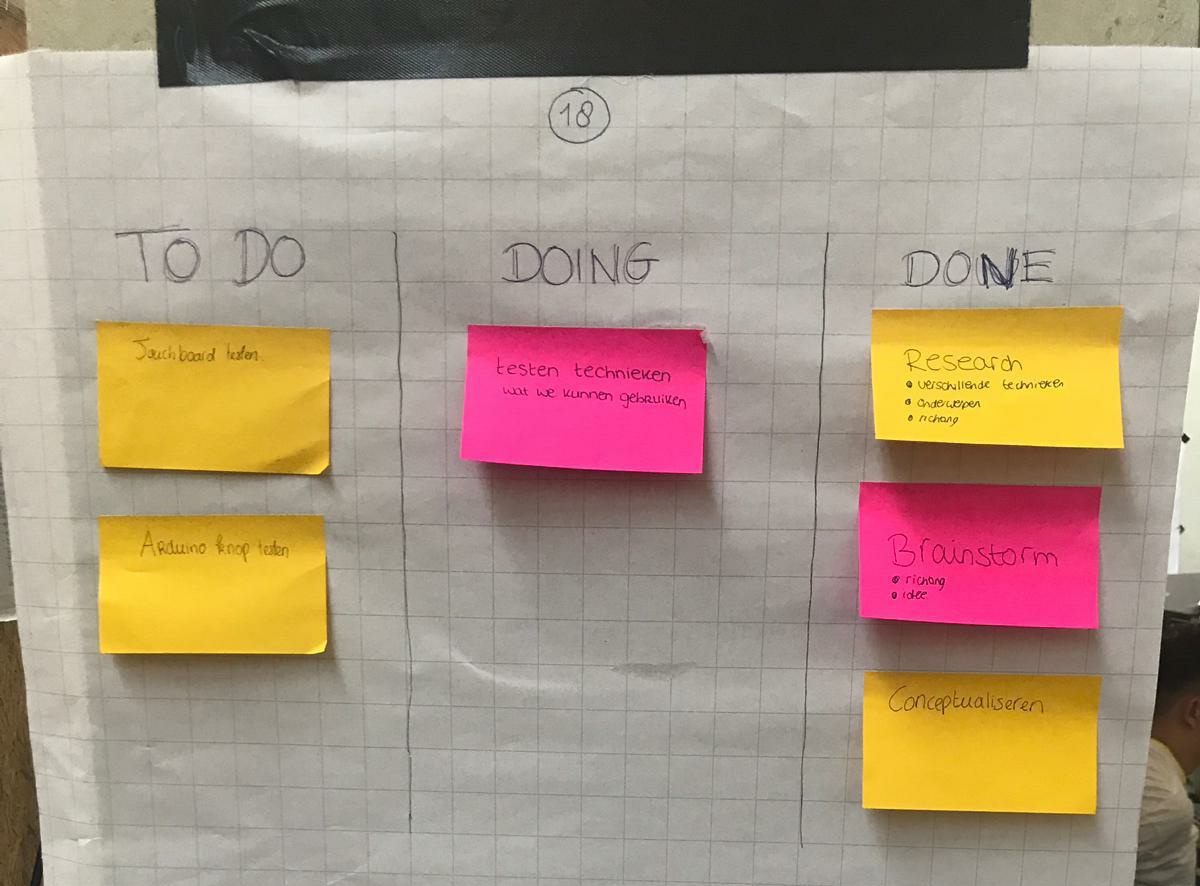 18
TO DO
DOING
DONE
Touchboard testen
Arduino knop testen
testen technieken
wat we kunnen gebruiken
Research
verschillende technieken
onderwerpen
richang
Brainstorm
richang
idee
Conceptualiseren